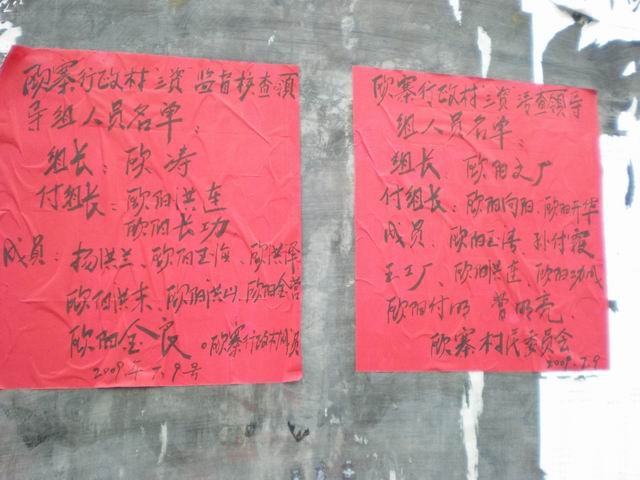 欧寨行政村"三资"监督核查領
导组人员名单:
组长:欧涛
付组长:欧阳洪连
欧阳长功
成员:杨洪兰、欧阳玉海、欧洪泽
欧阳洪来、欧阳洪山、欧阳金营
欧阳金良。欧寨行政村
2009年7.9号
欧寨行政村"三资"清查領导
组人员名单:
组长:欧阳文广
付组长:欧阳向阳、欧阳开华
成员、欧阳玉海 孙付霞
王广、欧阳洪连、欧阳功成
欧阳付明 曹明亮、
欧寨村民委员会
2009.7.9